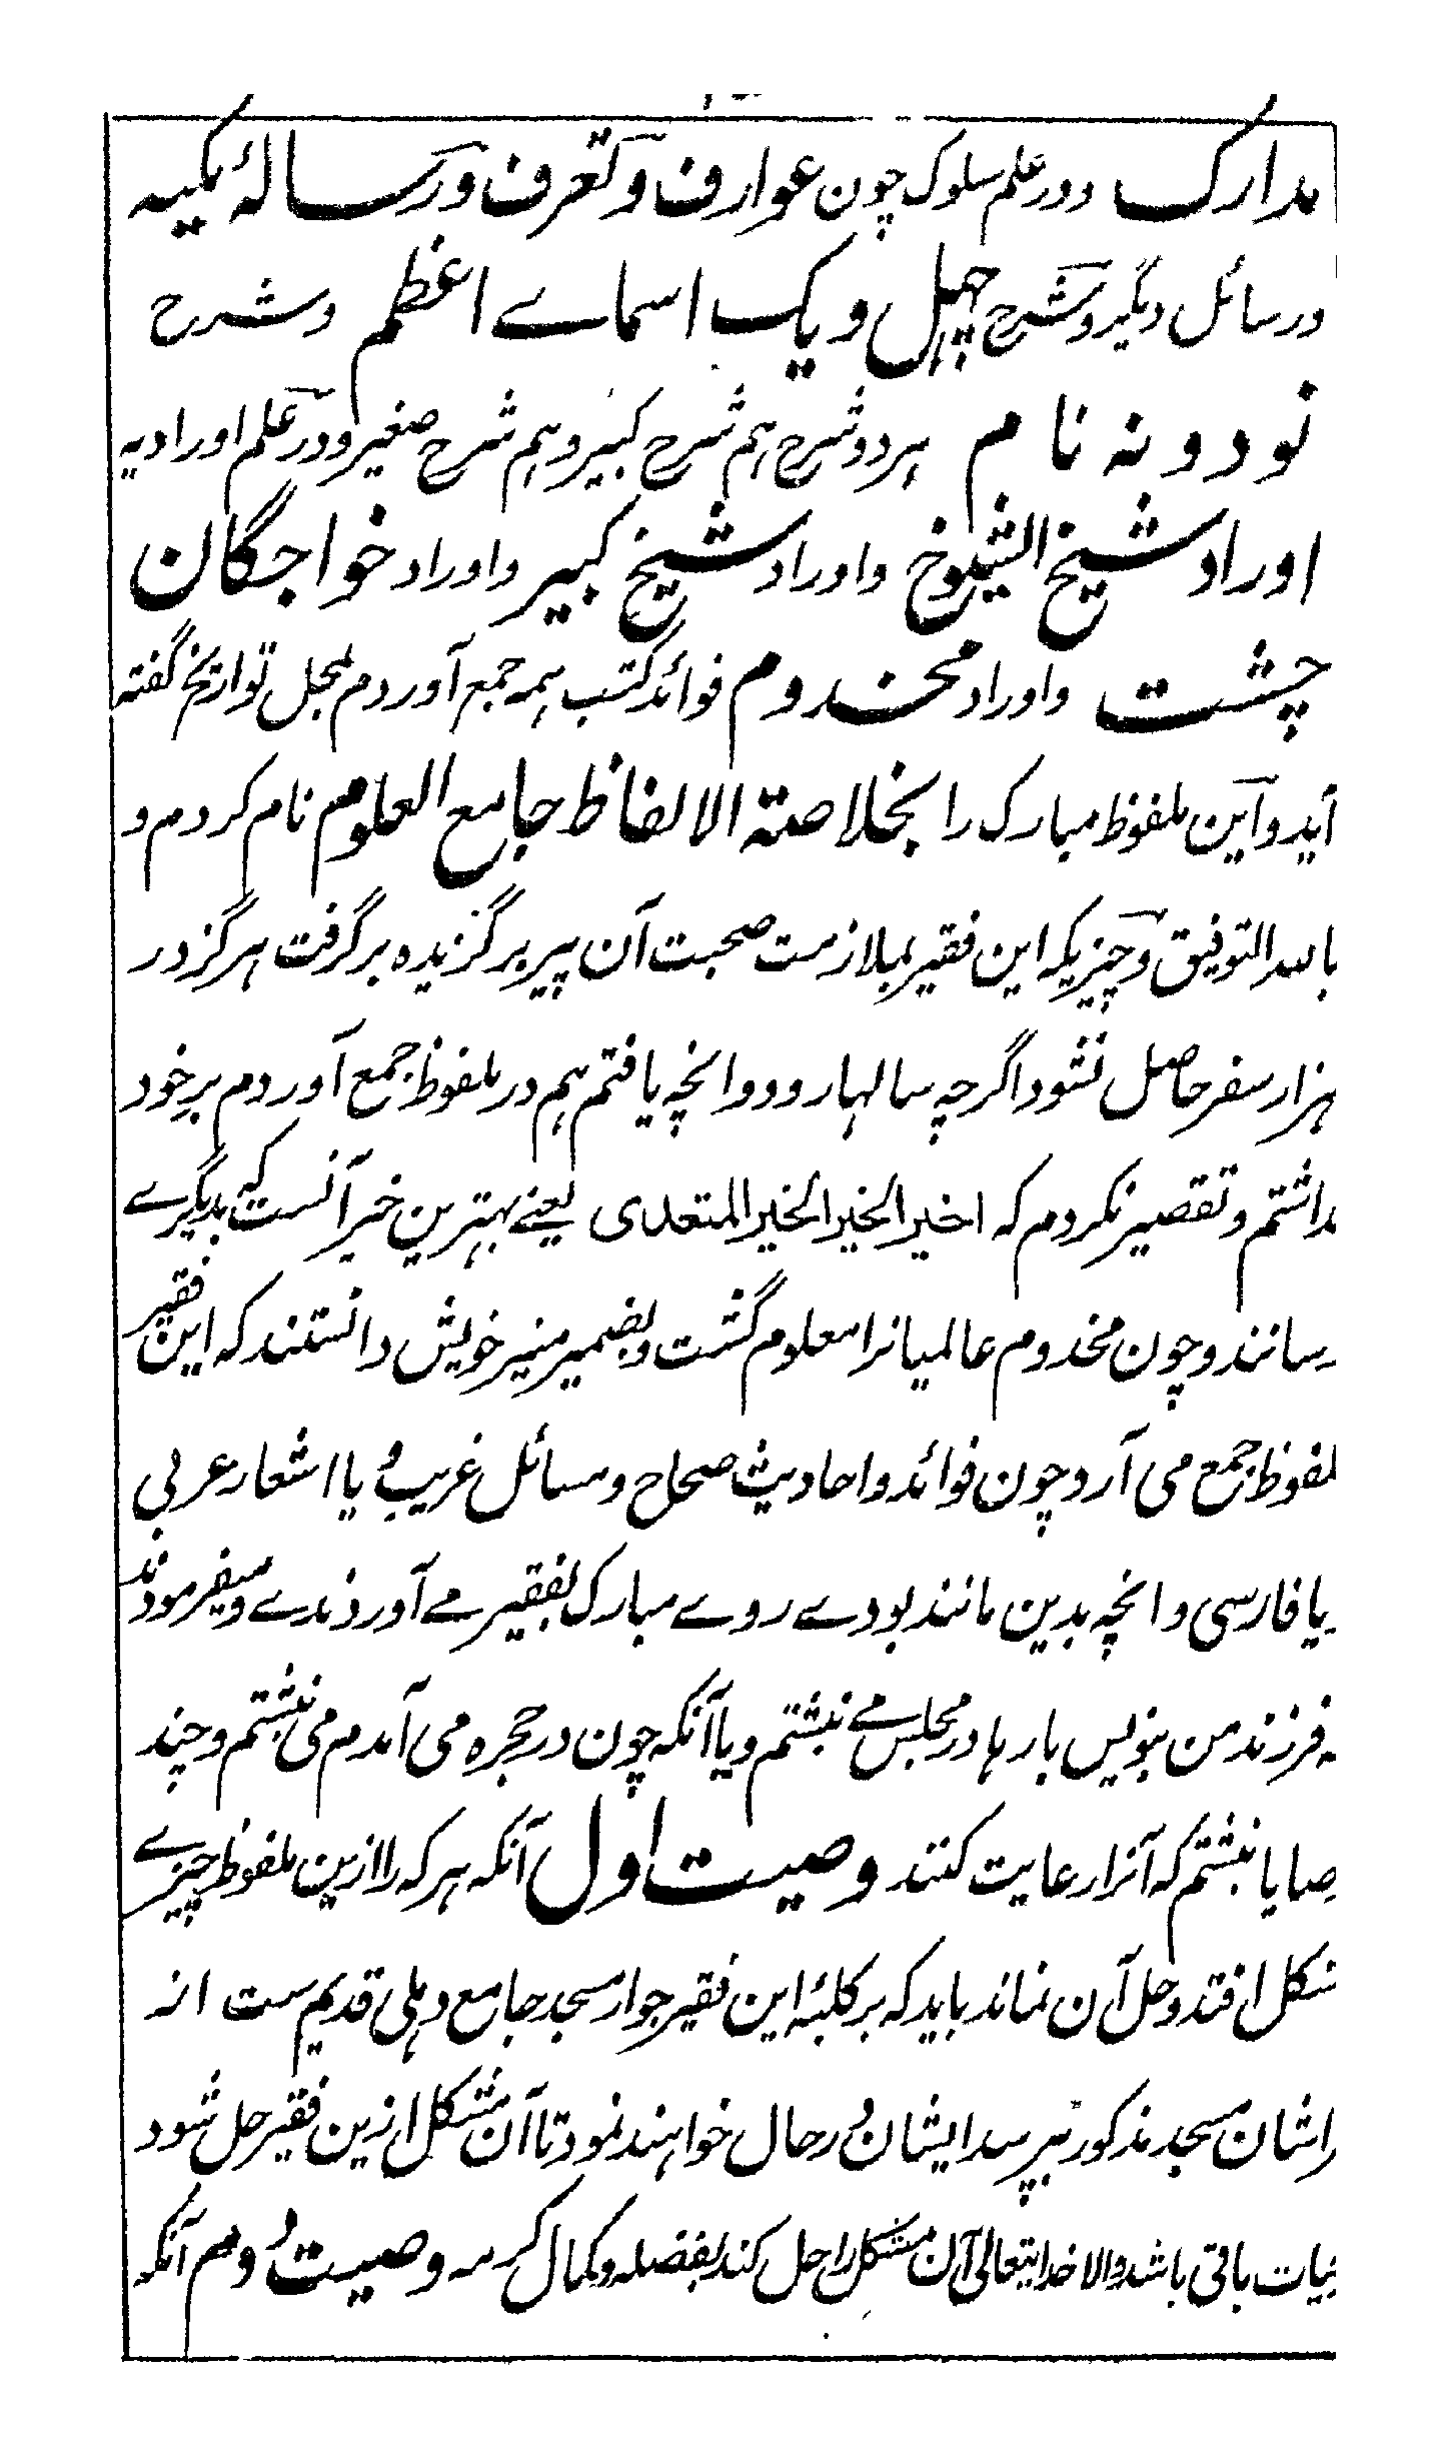 مدارک و در علم سلوک چون عوارف و تعرف و رسالۀ مکیه
و رسائل دیگر و شرح چہل و یک اسماے اعظم و شرح
نود و نہ نام ہر دو شرح ہم شرح کبیر و ہم شرح صغیر و در علم اورادیہ
اوراد شیخ الشیوخ و اوراد شیخ کبیر و اوراد خواجگان
چشت و اوراد مخدوم فوائد کتب ہمہ جمع آوردم بمحل تواریخ گفته
آید و این ملفوظ مبارک را بخلاصتہ الالفاظ جامع العلوم نام کردم و
بالله التوفیق و چیزیکہ این فقیر بملازمت صحبت آن پیر برگزیدہ برگرفت ہرگز در
ہزار سفر حاصل نشود اگرچہ سالہا رود و انچہ یافتم ہم در ملفوظ جمع آوردم بر خود
داشتم و تقصیر نکردم کہ اخیر الخیر الخیر المتعدی یعنے بہترین خیر آنست کہ بدیگرے
رسانند و چون مخدوم عالمیانرا معلوم گشت و بضمیر منیر خویش دانستند کہ این فقیر
ملفوظ جمع می آرد چون فوائد و احادیث صحاح و مسائل غریب و یا اشعار عربی
یا فارسی و انچہ بدین مانند بودے روے مبارک بفقیر مے آوردندے و میفرمودند
کہ فرزند من بنویس بارہا در مجلس مے نبشتم و یا آنکہ چون در حجرہ می آمدم می نبشتم و چند
وصایا نبشتم کہ آنرا رعایت کنند وصیت اول آنکہ ہر کہ را ازین ملفوظ چیزے
مشکل افتد و حل آن نماند باید کہ بر کلبۂ این فقیر جوار مسجد جامع دہلی قدیم ست انہ
فراشان مسجد مذکور بپرسد ایشان رحال خواہند نمود تا آن مشکل ازین فقیر حل شود
حیات باقی باشد والا خدایتعالی آن مشکل را حل کند بفضلہ و کمال کرمہ وصیت دوم آنکہ